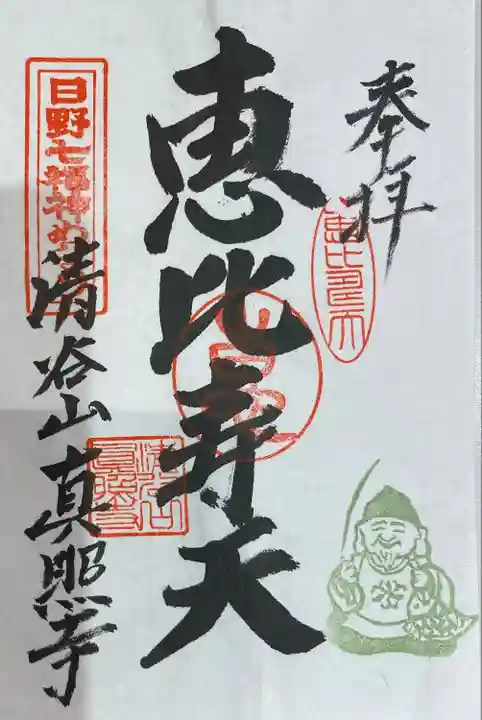 奉拝
恵比寿天
恵比寿天
日野七福神めぐり
清谷山 真照寺